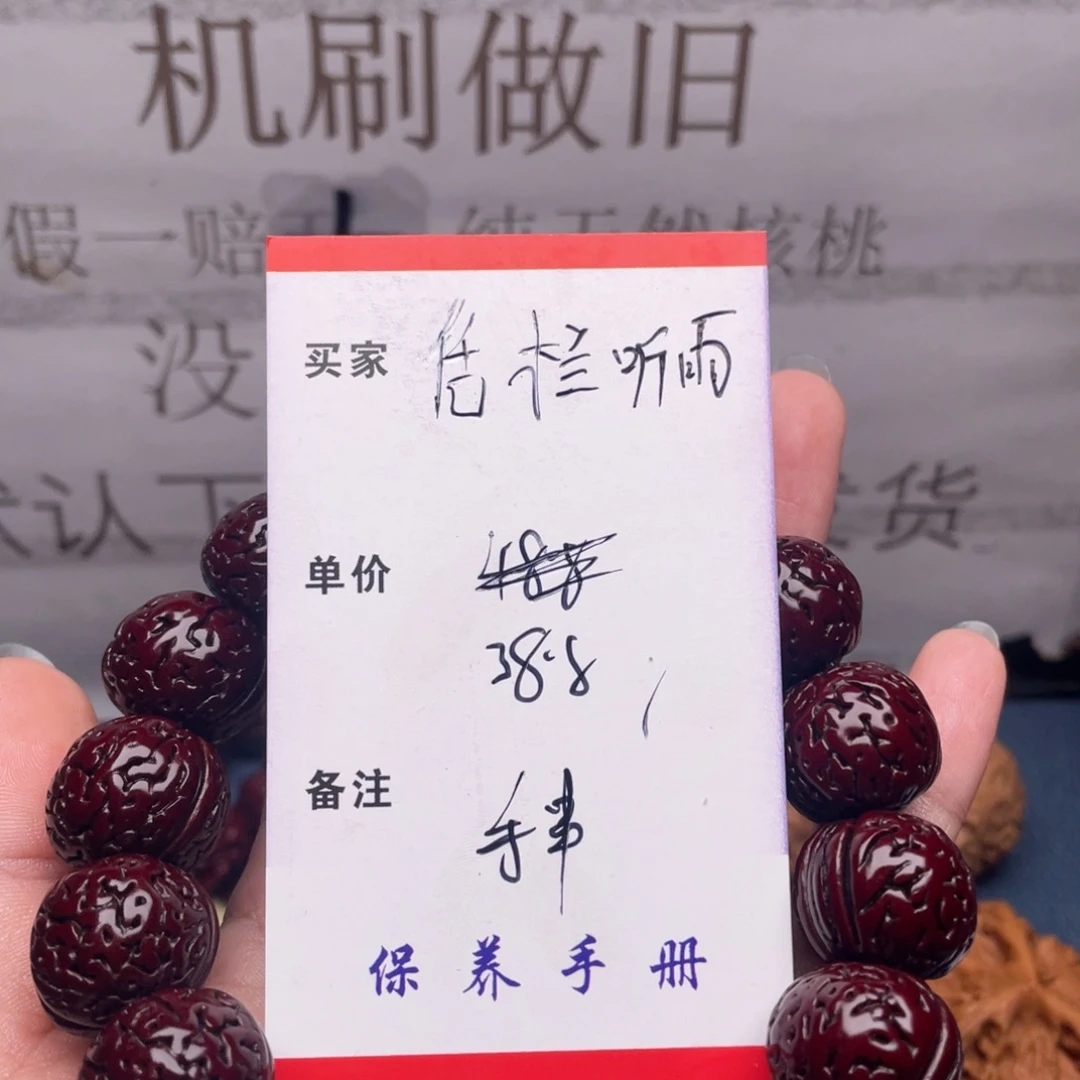 机刷做旧
假一赔
核桃
没
认下
货
买家 估栏听雨
单价 488
38.8
备注 手串
保养手册